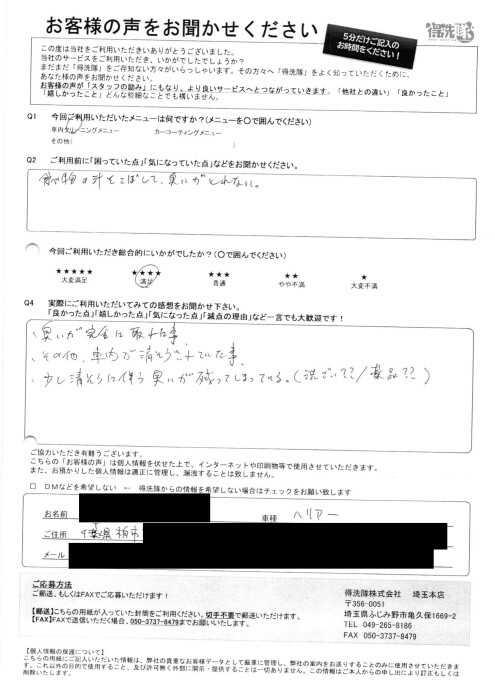 お客様の声をお聞かせください
5分だけご記入の
お時間をください!
得洗隊
この度は当社をご利用いただきありがとうございました。
当社のサービスをご利用いただき、いかがでしたでしょうか?
まだまだ「得洗隊」をご存知ない方々がいらっしゃいます。その方々へ「得洗隊」をよく知っていただくために、
あなた様の声をお聞かせください。
お客様の声が「スタッフの励み」にもなり、より良いサービスへとつながっていきます。「他社との違い」「良かったこと」
「嬉しかったこと」どんな些細なことでも構いません。
Q1 今回ご利用いただいたメニューは何ですか?(メニューを○で囲んでください)
車内クリーニングメニュー カーコーティングメニュー
その他( )
Q2 ご利用前に「困っていた点」「気になっていた点」などをお聞かせください。
の汁をこぼして、臭いがとれない。
今回ご利用いただき総合的にいかがでしたか?(○で囲んでください)
★★★★★ ★★★★ ★★★ ★★ ★
大変満足 満足 普通 やや不満 大変不満
Q4 実際にご利用いただいてみての感想をお聞かせ下さい。
「良かった点」「嬉しかった点」「気になった点」「減点の理由」など一言でも大歓迎です!
、臭いが完全に取れた事
、その他、車内で清そうされていた事
、少し清そうに伴う臭いが残ってしまっている。(洗ざい??/薬品??)
ご協力いただき有難うございます。
こちらの「お客様の声」は個人情報を伏せた上で、インターネットや印刷物等で使用させていただきます。
また、お預かりした個人情報は適正に管理し、漏洩することは致しません。
□ DMなどを希望しない ← 得洗隊からの情報を希望しない場合はチェックをお願い致します
お名前 車種 ハリアー
ご住所 千葉県柏市
メール
ご応募方法
ご郵送、もしくはFAXでご応募いただけます!
【郵送】こちらの用紙が入っていた封筒をご利用ください。切手不要で郵送いただけます。
【FAX】FAXで送信いただく場合、050-3737-8479までお願いいたします。
得洗隊株式会社 埼玉本店
〒356-0051
埼玉県ふじみ野市亀久保1669-2
TEL 049-265-8186
FAX 050-3737-8479
【個人情報の保護について】
こちらの用紙にご記入いただいた情報は、弊社の貴重なお客様データとして厳重に管理し、弊社の案内をお送りすることのみに使用させていただきま
す。これ以外の目的で使用すること、及び許可無く外部に開示・提供することは一切ありません。この情報はご本人からの申し出により訂正もしくは
削除いたします。